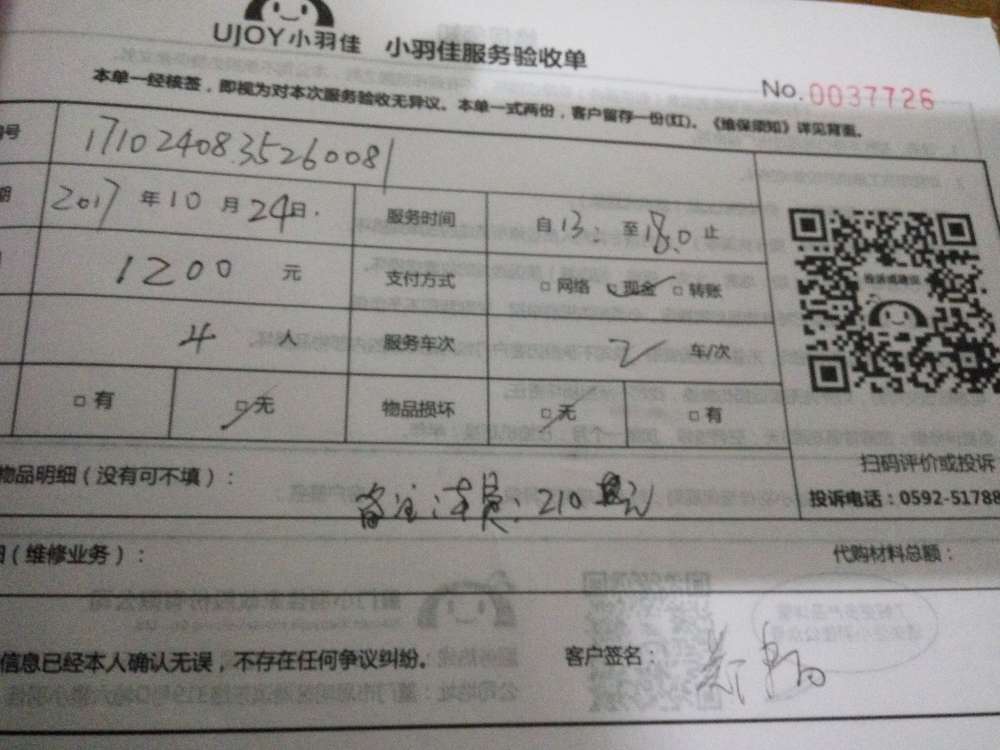 UJOY小羽佳 小羽佳服务验收单
No. 0037726
本单一经核签，即视为对本次服务验收无异议。本单一式两份，客户留存一份(红)。《维保须知》详见背面。
号 171024083526008
期 2017年10月24日 服务时间 自13. 至18.0止
1200 元 支付方式 □网络 □现金 □转账
4 人 服务车次 2 车/次
□有 □无 物品损坏 □无 □有
投诉或建议
扫码评价或投诉
物品明细（没有可不填）：
投诉电话：0592-51788
备注：210
（维修业务）： 代购材料总额：
信息已经本人确认无误，不存在任何争议纠纷。 客户签名：